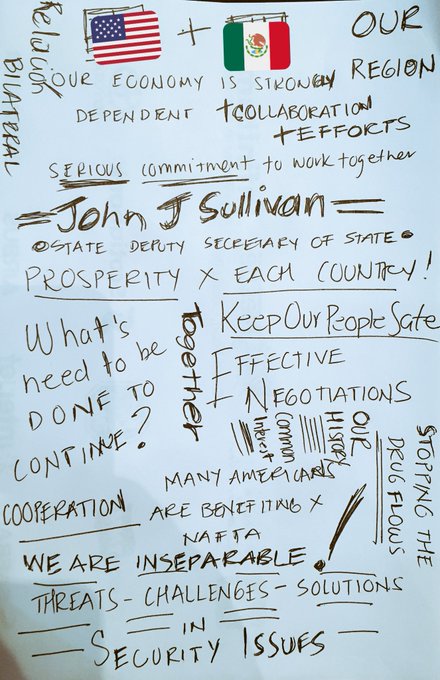 Relación
BILATERAL
+
OUR
REGION
OUR ECONOMY IS STRONGLY
DEPENDENT
+COLLABORATION
+EFFORTS
SERIOUS commitment to work together
=John J Sullivan=
•STATE DEPUTY SECRETARY OF STATE•
PROSPERITY x EACH COUNTRY!
What's
need to be
DONE TO
CONTINUE?
Together
Keep Our People Safe
EFFECTIVE
NEGOTIATIONS
OUR
HISTORY
Common
Interest
STOPPING THE
DRUG FLOWS
MANY AMERICANS
COOPERATION ARE BENEFITING x
NAFTA
WE ARE INSEPARABLE!
THREATS - CHALLENGES - SOLUTIONS
IN
SECURITY ISSUES